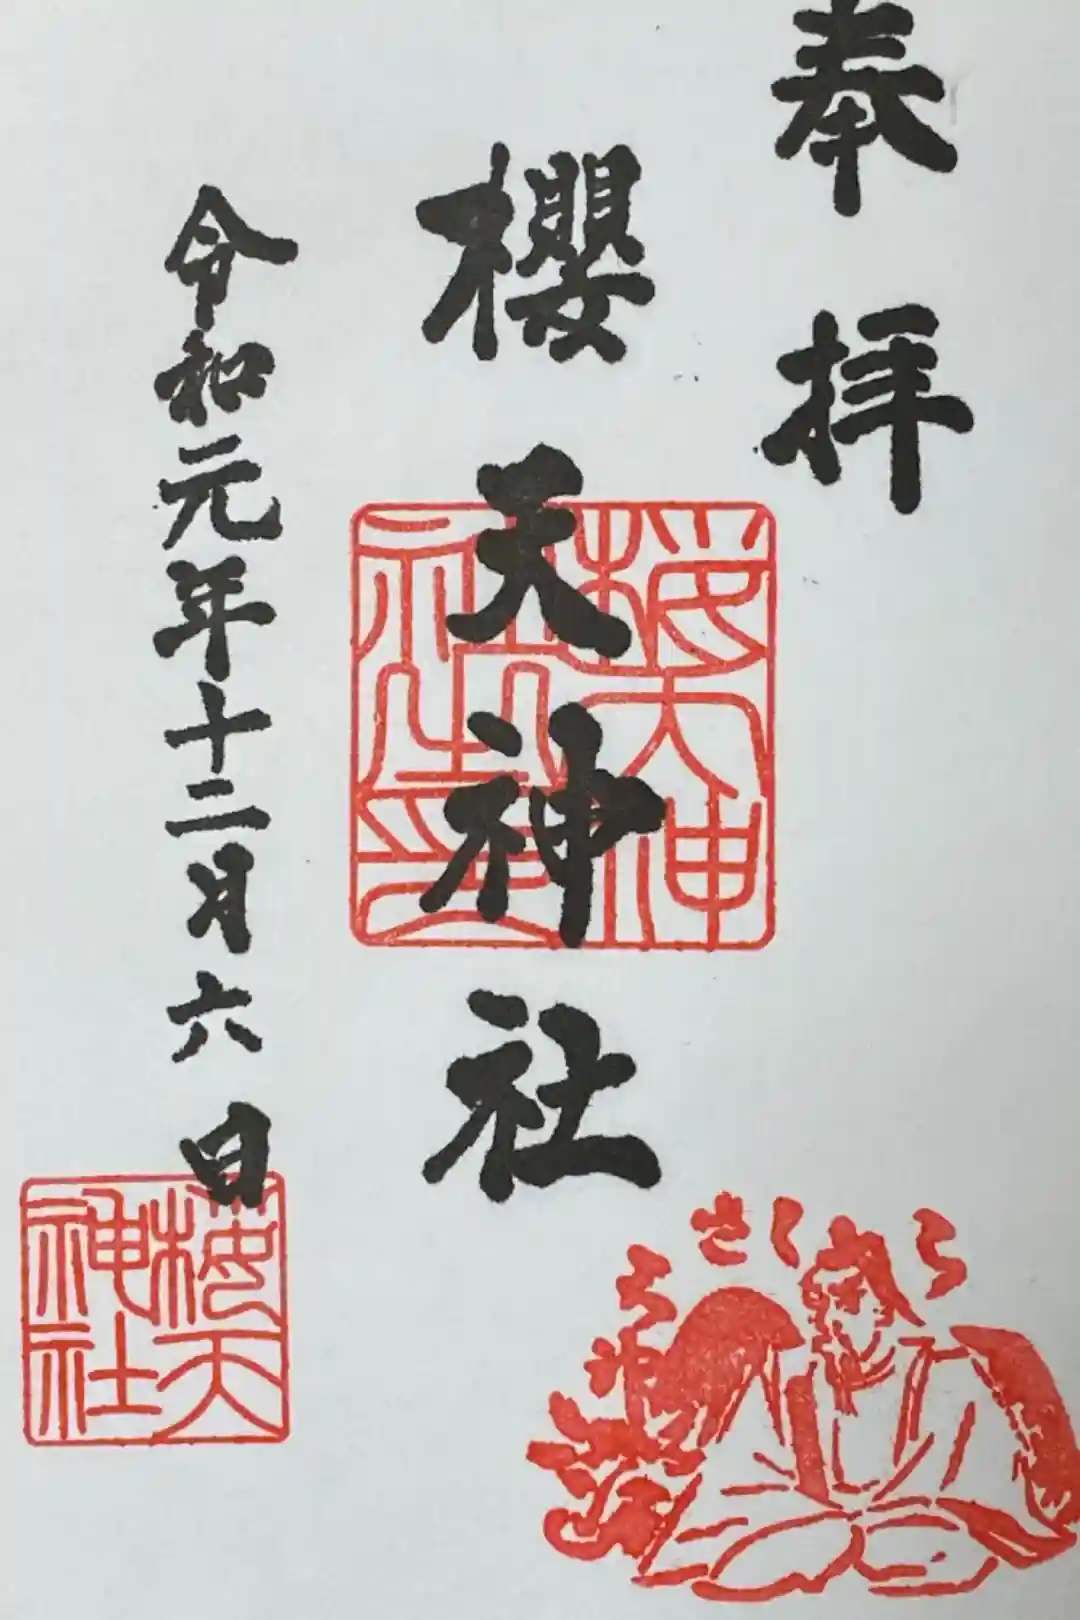 奉拝
櫻天神社
令和元年十二月六日
桜天神
社印
桜天
神社